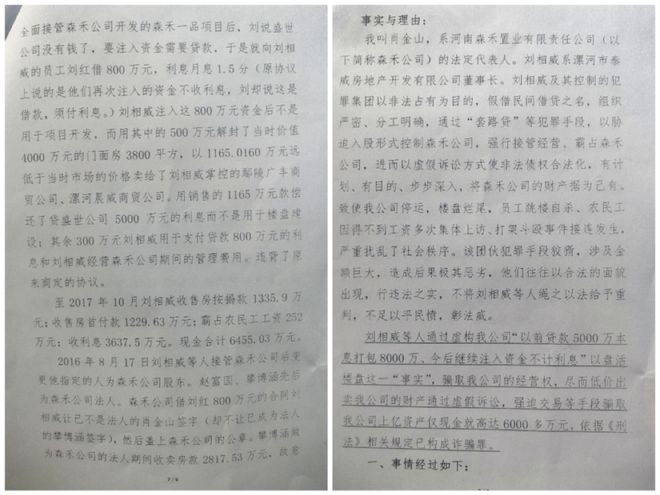 全面接管森禾公司开发的森禾一品项目后，刘说盛世
公司没有钱了，要注入资金需要贷款，于是就向刘相
威的员工刘红借 800 万元，利息月息 1.5 分（原协议
上说的是他们再次注入的资金不收利息，刘却说这是
借款，须付利息。）刘相威注入这 800 万元资金后不是
用于项目开发，而用其中的 500 万元解封了当时价值
4000 万元的门面房 3800 平方，以 1165.0160 万元远
低于当时市场的价格卖给了刘相威掌控的鄢陵广丰商
贸公司、漯河晨威商贸公司。用销售的 1165 万元款偿
还了贷盛世公司 5000 万元的利息而不是用于楼盘建
设；其余 300 万元刘相威用于支付贷款 800 万元的利
息和刘相威经营森禾公司期间的管理费用。违背了原
来商定的协议。
至 2017 年 10 月刘相威收售房按揭款 1335.9 万
元；收售房首付款 1229.63 万元；霸占农民工工资 252
万元；收利息 3637.5 万元。现金合计 6455.03 万元。
2016 年 8 月 17 日刘相威等人接管森禾公司后变
更他指定的人为森禾公司股东。赵富国、攀博涵先后
为森禾公司法人。森禾公司借刘红 800 万元的合同刘
相威让已不是法人的肖金山签字（却不让已成为法人
的攀博涵签字），然后盖上森禾公司的公章。攀博涵做
为森禾公司的法人期间收卖房款 2817.53 万元，故意
7/8
事实与理由：
我叫肖金山，系河南森禾置业有限责任公司（以
下简称森禾公司）的法定代表人。刘相威系漯河市泰
威房地产开发有限公司董事长。刘相威及其控制的犯
罪集团以非法占有为目的，假借民间借贷之名，组织
严密、分工明确，通过“套路贷”等犯罪手段，以胁
迫入股形式控制森禾公司，强行接管经营、霸占森禾
公司，进而以虚假诉讼方式使非法债权合法化，有计
划、有目的、步步深入，将森禾公司的财产据为己有。
致使我公司停运，楼盘烂尾，员工跳楼自杀、农民工
因得不到工资多次集体上访、打架斗殴事件接连发生，
严重扰乱了社会秩序。该团伙犯罪手段狡猾，涉及金
额巨大，造成后果极其恶劣，他们往往以合法的面貌
出现，行违法之实，不将刘相威等人绳之以法给予重
判，不足以平民愤，彰法威。
刘相威等人通过虚构我公司“以前贷款 5000 万本
息打包 8000 万，今后继续注入资金不计利息”以盘活
楼盘这一“事实”，骗取我公司的经营权，尽而低价出
卖我公司的财产通过虚假诉讼，强迫交易等手段骗取
我公司上亿资产仅现金就高达 6000 多万元，依据《刑
法》相关规定已构成诈骗罪。
一、事情经过如下：